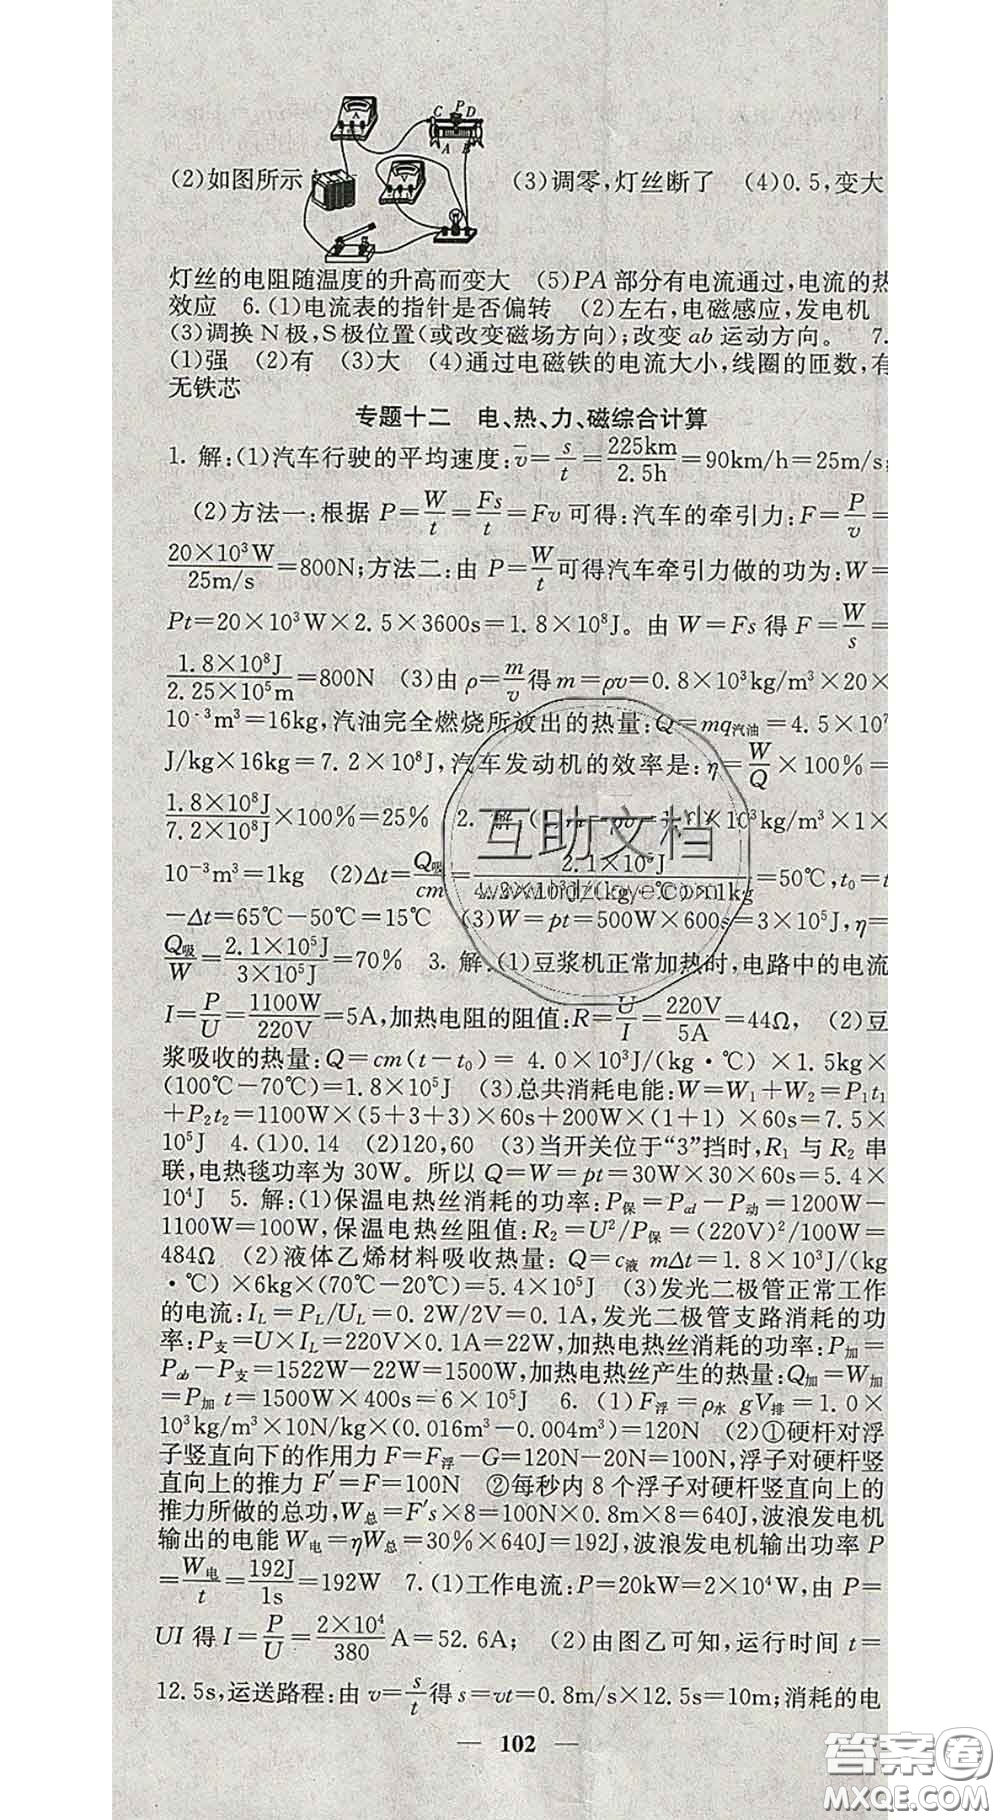 C P D
A
A B
V
(2)如图所示 (3)调零,灯丝断了 (4)0.5,变大
灯丝的电阻随温度的升高而变大 (5)PA部分有电流通过,电流的热
效应 6.(1)电流表的指针是否偏转 (2)左右,电磁感应,发电机
(3)调换N极,S极位置(或改变磁场方向);改变ab运动方向。 7.
(1)强 (2)有 (3)大 (4)通过电磁铁的电流大小,线圈的匝数,有
无铁芯
专题十二 电、热、力、磁综合计算
1. 解:(1)汽车行驶的平均速度:v̄=s/t=225km/2.5h=90km/h=25m/s;
(2)方法一:根据P=W/t=Fs/t=Fv可得:汽车的牵引力:F=P/v=
20×10³W/25m/s=800N;方法二:由P=W/t可得汽车牵引力做的功为:W=
Pt=20×10³W×2.5×3600s=1.8×10⁸J。由W=Fs得F=W/s=
1.8×10⁸J/2.25×10⁵m=800N (3)由ρ=m/v得m=ρv=0.8×10³kg/m³×20×
10⁻³m³=16kg,汽油完全燃烧所放出的热量:Q=mq汽油=4.5×10⁷
J/kg×16kg=7.2×10⁸J,汽车发动机的效率是:η=W/Q×100%=
1.8×10⁸J/7.2×10⁸J×100%=25% 2. 解 ×10³kg/m³×1×
10⁻³m³=1kg (2)Δt=Q吸/cm=2.1×10⁵J/4.2×10³J/(kg·℃)×1kg=50℃,t₀=t
-Δt=65℃-50℃=15℃ (3)W=pt=500W×600s=3×10⁵J,η=
Q吸/W=2.1×10⁵J/3×10⁵J=70% 3. 解:(1)豆浆机正常加热时,电路中的电流
I=P/U=1100W/220V=5A,加热电阻的阻值:R=U/I=220V/5A=44Ω, (2)豆
浆吸收的热量:Q=cm(t-t₀)= 4.0×10³J/(kg·℃)×1.5kg×
(100℃-70℃)=1.8×10⁵J (3)总共消耗电能:W=W₁+W₂=P₁t₁
+P₂t₂=1100W×(5+3+3)×60s+200W×(1+1)×60s=7.5×
10⁵J 4.(1)0.14 (2)120,60 (3)当开关位于“3”挡时,R₁与R₂串
联,电热毯功率为30W。所以Q=W=pt=30W×30×60s=5.4×
10⁴J 5. 解:(1)保温电热丝消耗的功率:P保=Pad-P动=1200W-
1100W=100W,保温电热丝阻值:R₂=U²/P保=(220V)²/100W=
484Ω (2)液体乙烯材料吸收热量: Q=c液 mΔt=1.8×10³J/(kg
·℃)×6kg×(70℃-20℃)=5.4×10⁵J (3)发光二极管正常工作
的电流:I_L=P_L/U_L=0.2W/2V=0.1A,发光二极管支路消耗的功
率:P支=U×I_L=220V×0.1A=22W,加热电热丝消耗的功率:P加=
Pab-P支=1522W-22W=1500W,加热电热丝产生的热量:Q加=W加
=P加 t=1500W×400s=6×10⁵J 6. (1)F浮=ρ水 gV排=1.0×
10³kg/m³×10N/kg×(0.016m³-0.004m³)=120N (2)①硬杆对浮
子竖直向下的作用力F=F浮-G=120N-20N=100N,浮子对硬杆竖
直向上的推力F′=F=100N ②每秒内8个浮子对硬杆竖直向上的
推力所做的总功,W总=F′s×8=100N×0.8m×8=640J,波浪发电机
输出的电能W电=ηW总=30%×640J=192J,波浪发电机输出功率P
=W电/t=192J/1s=192W 7.(1)工作电流:P=20kW=2×10⁴W,由P=
UI得I=P/U=2×10⁴/380A=52.6A; (2)由图乙可知,运行时间t=
12.5s,运送路程:由v=s/t得s=vt=0.8m/s×12.5s=10m;消耗的电
— 102 —
互助文档
答案圈
MXQE.COM